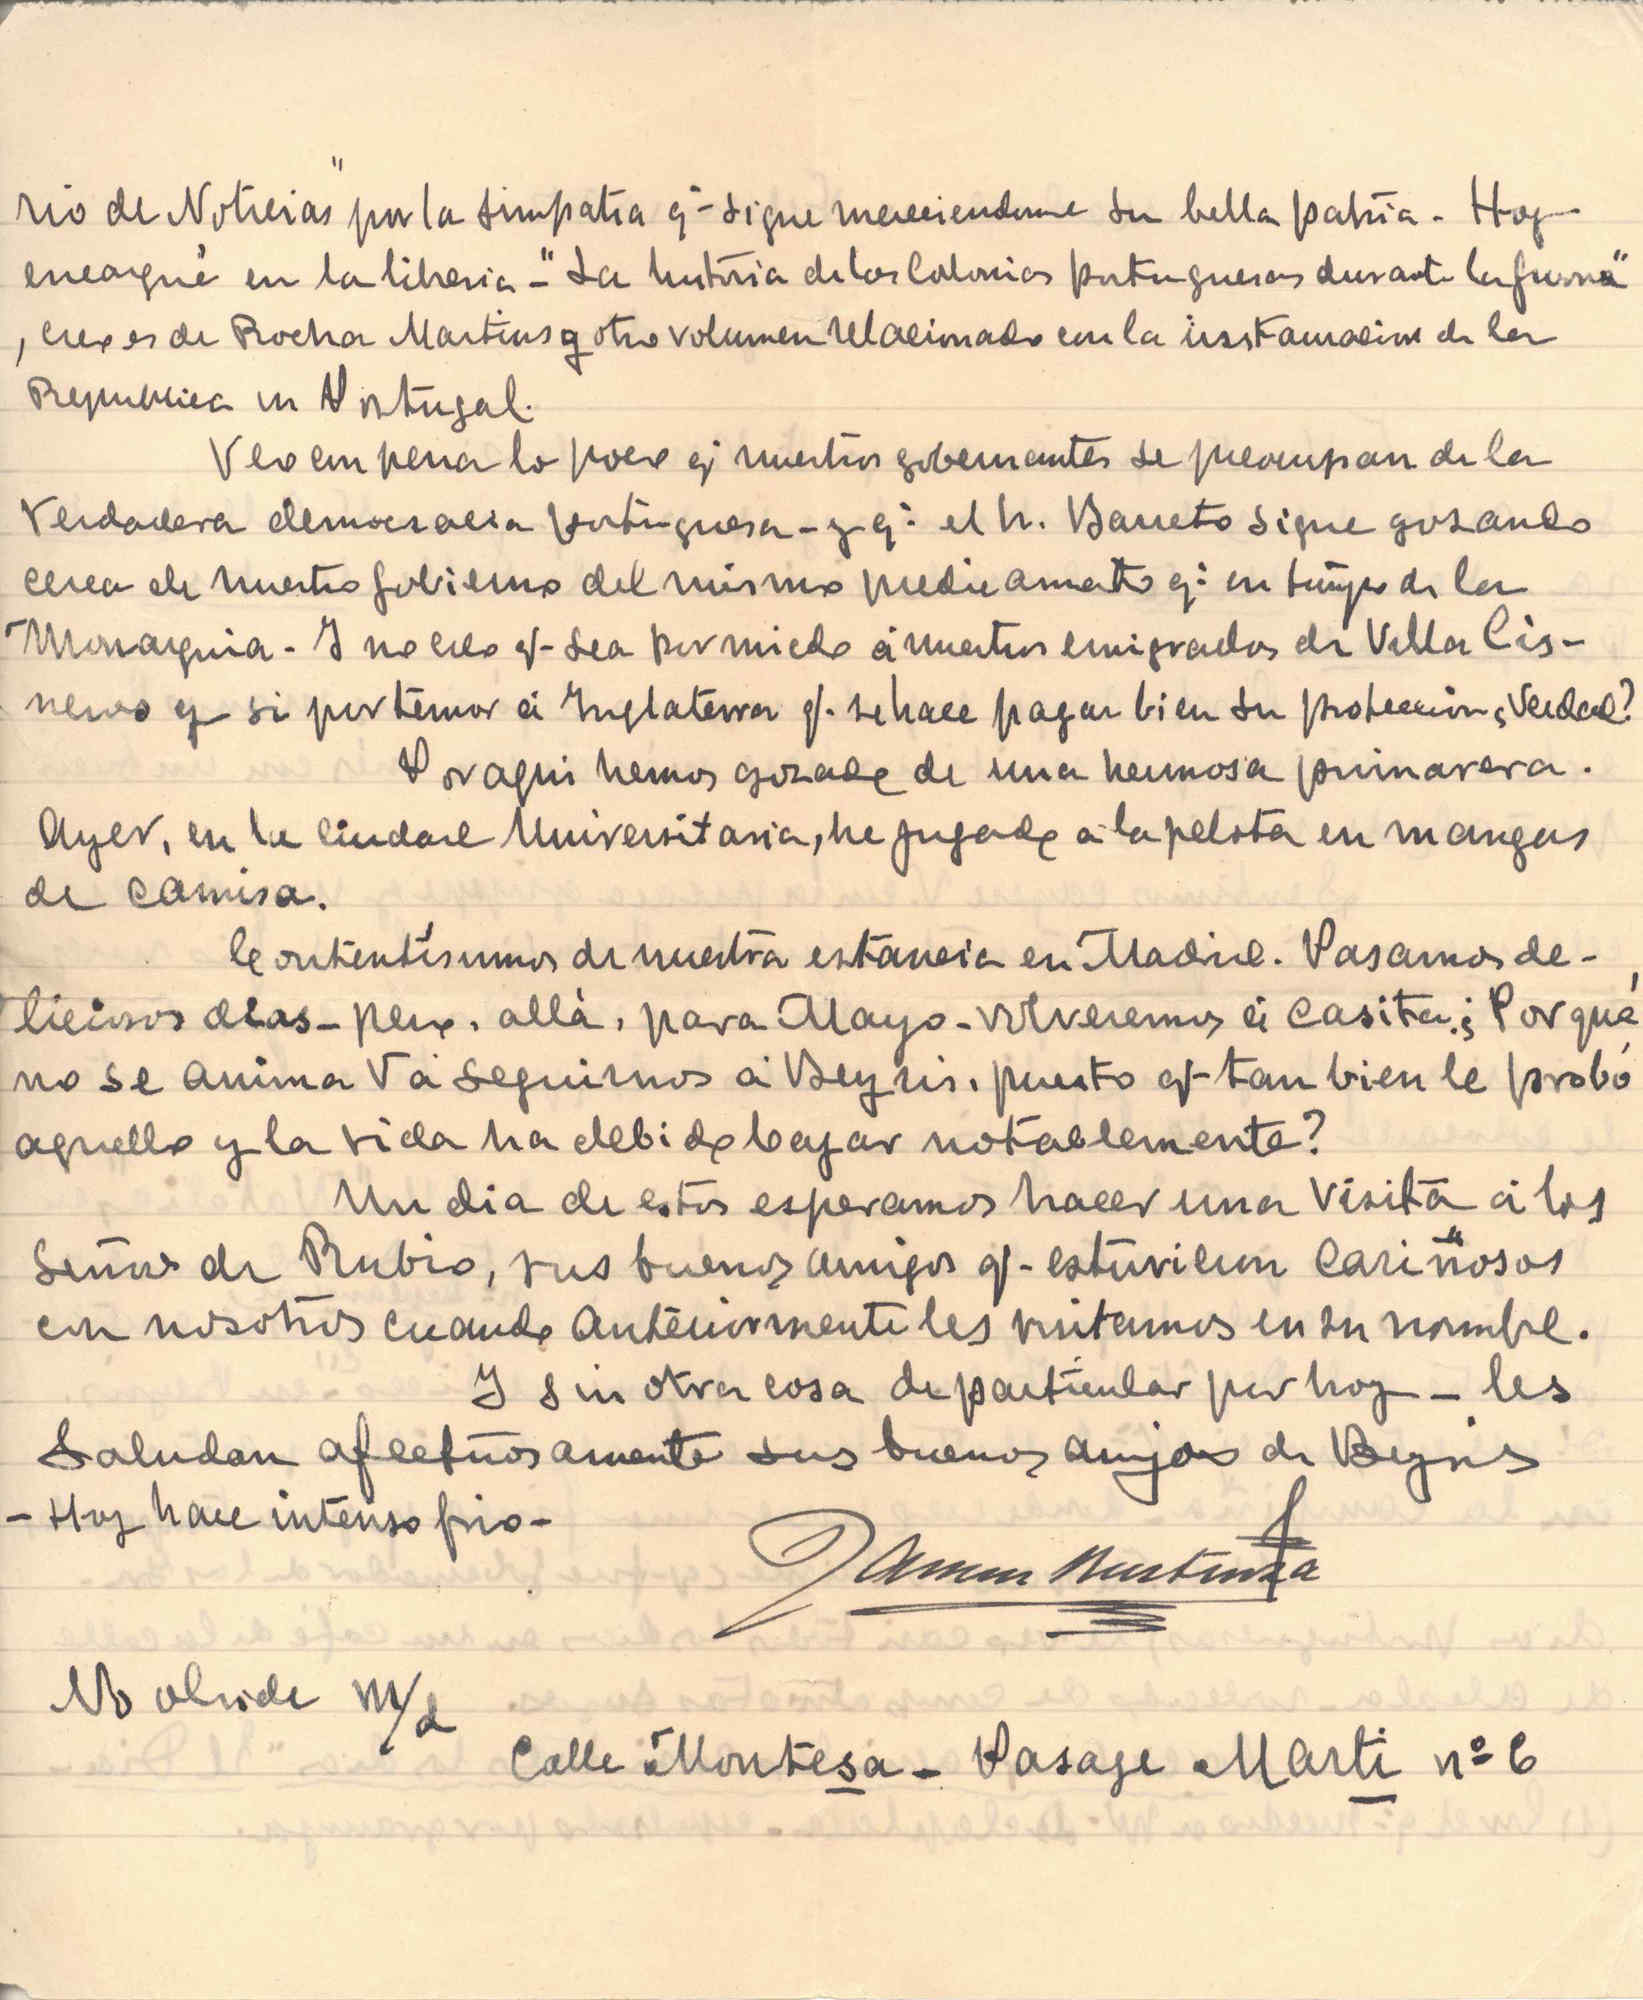 rio de Noticias" por la simpatia q- sigue mereciendome su bella patria - Hoy
encargué en la libreria - "La história de las Colonias portuguesas durante la guerra"
, creo es de Rocha Martins y otro volumen relacionado con la instauracion de la
Republica en Portugal.
Veo con pena lo poco q: nuestros gobernantes se preocupan de la
verdadera democracia portuguesa - y q: el h. Barreto sigue gozando
cerca de nuestro gobierno del mismo predicamento q: en tiempo de la
Monarquia - Y no creo q- sea por miedo á nuestros emigrados de Villa Cis-
neros y si por temor á Inglaterra q- se hace pagar bien su proteccion ¿verdad?
Por aqui hemos gozado de una hermosa primavera.
Ayer, en la Ciudad Universitaria, he jugado a la pelota en mangas
de camisa.
Contentísimos de nuestra estancia en Madrid. Pasamos de-
liciosos dias - pero, allá, para Mayo - volveremos á casita. ¿Por qué
no se anima V á seguirnos á Beyris, puesto q- tan bien le probó
aquello y la vida ha debido bajar notablemente?
Un dia de estos esperamos hacer una visita á los
Señores de Rubio, sus buenos amigos q- estuvieron cariñosos
con nosotros cuando anteriormente les visitamos en su nombre.
Y sin otra cosa de particular por hoy - les
saludan afectuosamente sus buenos amigos de Beyris
- Hoy hace intenso frio -
Ramon Bustinza
No olvide m/d
Calle Montesa - Pasage Marti nº 6